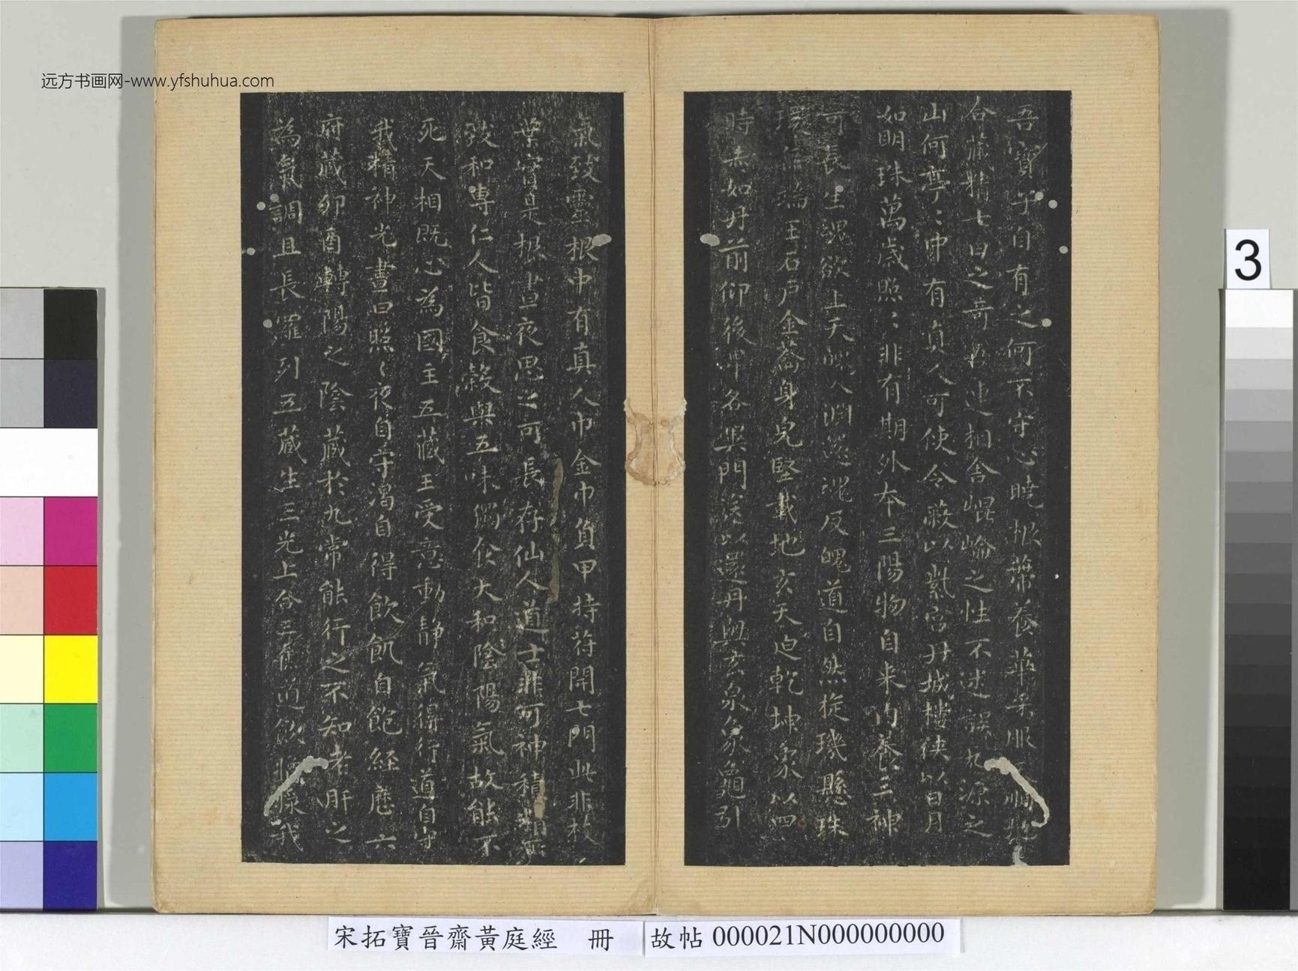 远方书画网-www.yfshuhua.com
吾寶子自有之何不守心曉根蒂養華采服順
合藏精七日之奇吾連相舍崐崘之性不迷誤九源之
山何亭〻中有真人可使令蔽以紫宫丹城樓俠以日月
如明珠萬歲照〻非有期外本三陽物自来内養三神
可長生魂欲上天魄入淵還魂反魄道自然旋璣懸珠
環無端玉石戶金籥身皃堅載地玄天迫乾坤象以四
時赤如丹前仰後卑各異門送以還丹與玄泉象龜引
氣致靈根中有真人巾金巾負甲持符開七門此非枝
葉實是根晝夜思之可長存仙人道士非可神積精所
致和專仁人皆食穀與五味獨食大和陰陽氣故能不
死天相既心為國主五藏王受意動静氣得行道自守
我精神光晝日照〻夜自守渴自得飲飢自飽經歷六
府藏卯酉轉陽之陰藏於九常能行之不知老肝之
為氣調且長羅列五藏生三光上合三焦道飲漿我
3
宋拓寶晉齋黃庭經 冊
故帖 000021N000000000